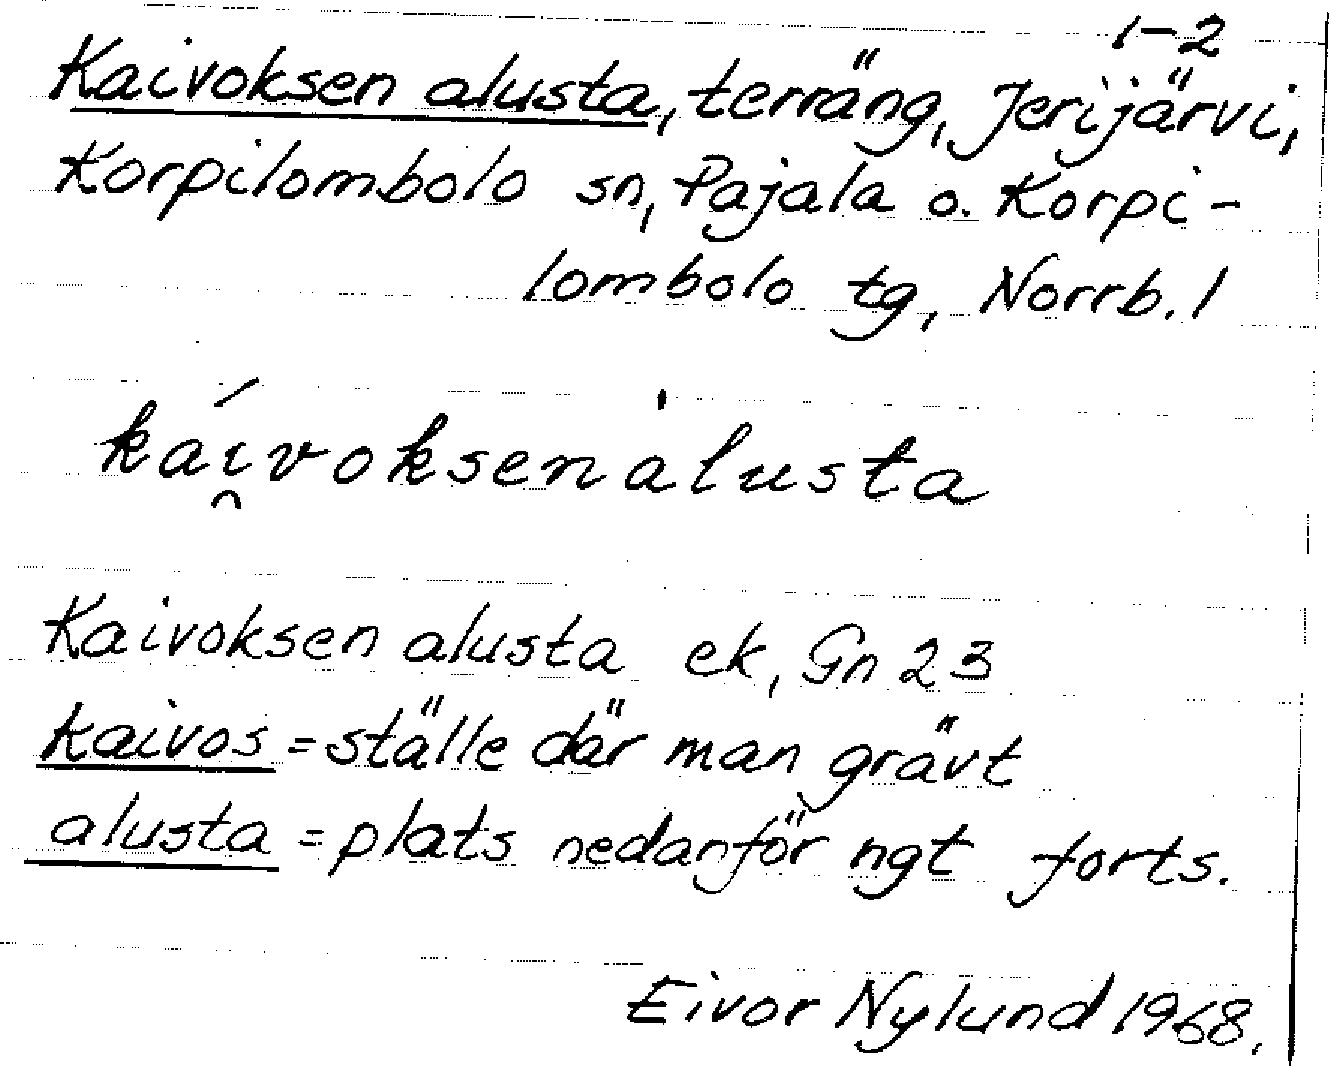 1-2
Kaivoksen alusta, terräng, Jerijärvi,
Korpilombolo sn, Pajala o. Korpi-
lombolo tg, Norrb. l
ká̯ivoksenàlusta
Kaivoksen alusta ek, Gn 23
kaivos = ställe där man grävt
alusta = plats nedanför ngt forts.
Eivor Nylund 1968.